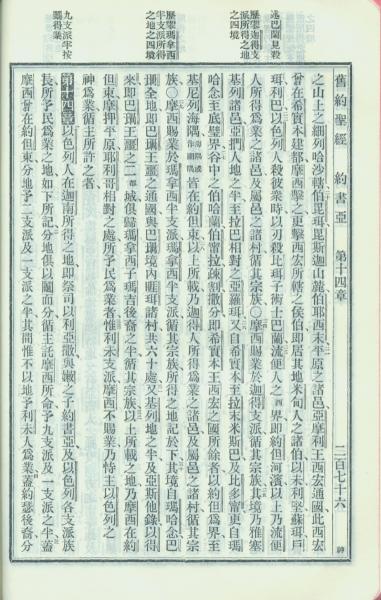 述巴蘭見殺
歷舉迦得支
派所得之地
之四境
歷舉瑪拿西
半支派所得
之地之四境
九支派半按
鬮得業
舊約聖經 約書亞 第十四章 二百七十六
之山上之細列哈沙轄伯毘珥毘斯迦山麓伯耶西末平原之諸邑亞摩利王西宏通國此西宏
曾在希實本建都摩西擊之更擊西宏所轄之侯伯即居其地米甸人之諸伯以未利堅蘇珥戶
珥利巴以色列人殺彼衆時以刃殺比珥子術士巴蘭流便人之西界即約但河濱以上乃流便
人所得爲業之諸邑及屬邑之諸村循其宗族○摩西賜業於迦得支派循其宗族其境乃雅塞
基列諸邑亞捫人地之半至拉巴相對之亞羅珥又自希實本至拉末米斯巴及比多甯更自瑪
哈念至底璧界谷中之伯哈蘭伯甯拉疎割撒分即希實本王西宏之國所餘者以約但爲界至
基尼烈海隅皆在約但東以上所載乃迦得人所得爲業之諸邑及屬邑之諸村循其宗
族○摩西賜業於瑪拿西半支派瑪拿西半支派循其宗族所得之地記於下其境自瑪哈念巴
珊全地即巴珊王噩之通國與巴珊境內睚珥諸村共六十處又基列地之半及亞斯他錄以得
來即巴珊王噩之二都城俱歸瑪拿西子瑪吉後裔之半循其宗族以上所載之地乃摩西在約
但東摩押平原耶利哥相對之處所予民爲業者惟利未支派摩西不賜業乃恃主以色列之
神爲業循主所許之
第十四章 以色列人在迦南所得之地即祭司以利亞撒與嫩之子約書亞及以色列各支派族
長所予民爲業之地如下所記分地俱以鬮而分循主託摩西所命予九支派及一支派之半蓋
摩西曾在約但東分地予二支派及一支派之半其間惟不以地予利未人爲業蓋約瑟後裔分